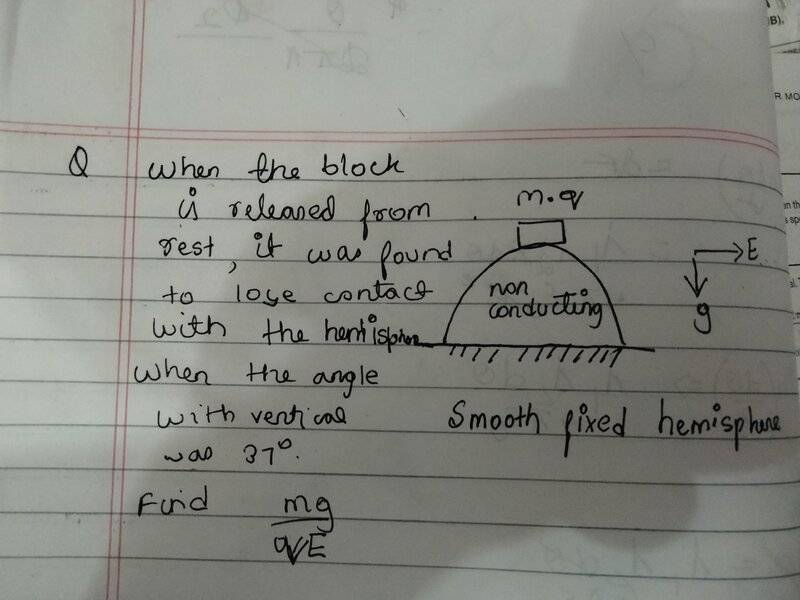 Q when the block
is released from
rest, it was found
to lose contact
with the hemisphere
when the angle
with vertical
was 37°.
Find mg
qE
m.q
non
conducting
E
g
Smooth fixed hemisphere
B).
R MO